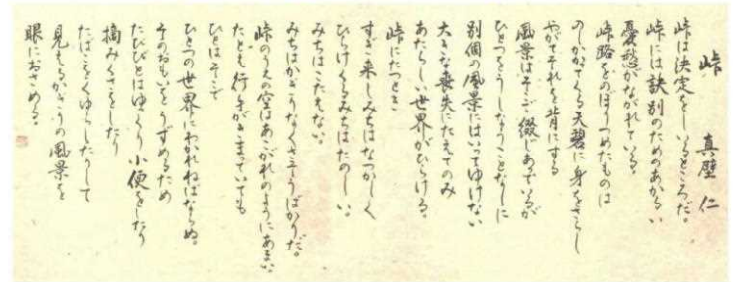 峠　真壁 仁
峠は決定をしいるところだ。
峠には訣別のためのあかるい
憂愁がながれている。
峠路をのぼりつめたものは
のしかかってくる天碧に身をさらし
やがてそれを背にする
風景はそこで綴じあっているが
ひとつをうしなうことなしに
別個の風景にはいってゆけない
大きな喪失にたえてのみ
あたらしい世界がひらける。
峠にたつとき
すぎ来しみちはなつかしく
ひらけくるみちはたのしい。
みちはこたえない。
みちはかぎりなくさそうばかりだ。
峠のうえの空はあこがれのようにあまい。
たとえ行手がきまっていても
ひとはそこで
ひとつの世界にわかれねばならぬ。
そのおもいをうずめるため
たびびとはゆっくり小便をしたり
摘みくさをしたり
たばこをくゆらしたりして
見えるかぎりの風景を
眼におさめる。